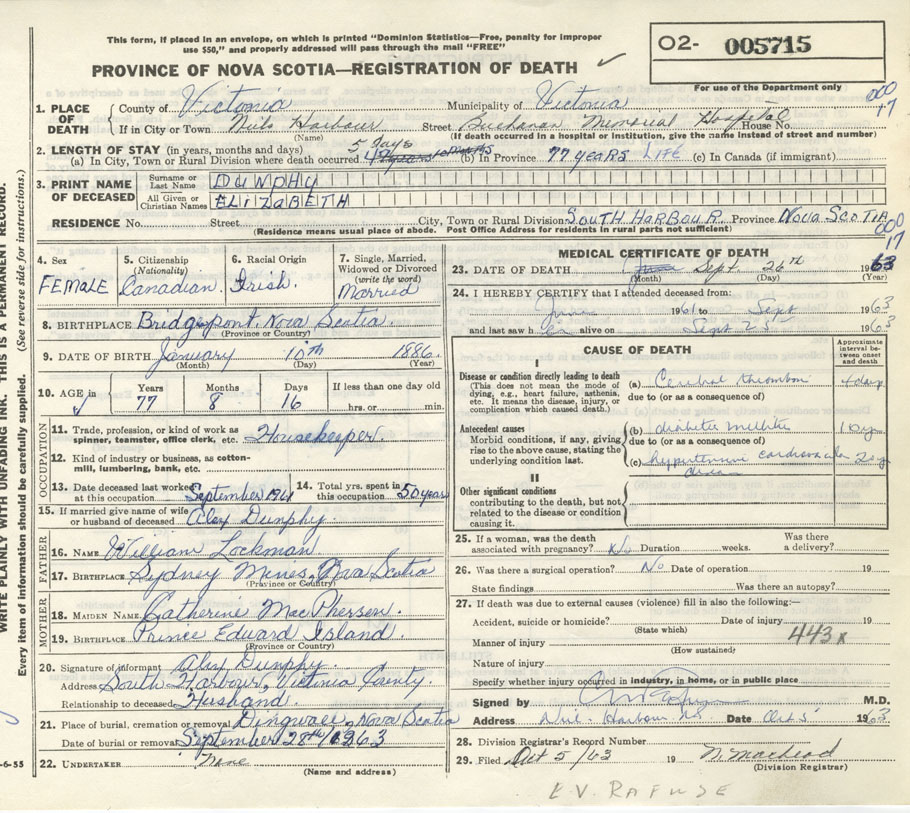 This form, if placed in an envelope, on which is printed "Dominion Statistics—Free, penalty for improper
use $50," and properly addressed will pass through the mail "FREE"
O2- 005715
PROVINCE OF NOVA SCOTIA—REGISTRATION OF DEATH ✓
For use of the Department only
000
17
1. PLACE OF DEATH
County of Victoria Municipality of Victoria
If in City or Town Neils Harbour Street Buchanan Memorial Hospital House No.
(Name) (If death occurred in a hospital or institution, give the name instead of street and number)
2. LENGTH OF STAY (in years, months and days) 5 days
(a) In City, Town or Rural Division where death occurred (b) In Province 77 years LIFE (c) In Canada (if immigrant)
3. PRINT NAME OF DECEASED
Surname or Last Name DUNPHY
All Given or Christian Names ELIZABETH
RESIDENCE No. Street City, Town or Rural Division SOUTH HARBOUR Province NOVA SCOTIA
(Residence means usual place of abode. Post Office Address for residents in rural parts not sufficient)
000
17
4. Sex FEMALE
5. Citizenship (Nationality) Canadian.
6. Racial Origin Irish.
7. Single, Married, Widowed or Divorced (write the word) Married
8. BIRTHPLACE Bridgeport, Nova Scotia
(Province or Country)
9. DATE OF BIRTH January 10th 1886.
(Month) (Day) (Year)
10. AGE in Years 77 Months 8 Days 16 If less than one day old hrs. or min.
✓
OCCUPATION
11. Trade, profession, or kind of work as spinner, teamster, office clerk, etc. Housekeeper.
12. Kind of industry or business, as cotton-mill, lumbering, bank, etc.
13. Date deceased last worked at this occupation September 1961
14. Total yrs. spent in this occupation 50 years
15. If married give name of wife or husband of deceased Alex Dunphy.
FATHER
16. NAME William Lockman
17. BIRTHPLACE Sydney Mines, Nova Scotia
(Province or Country)
MOTHER
18. MAIDEN NAME Catherine MacPherson.
19. BIRTHPLACE Prince Edward Island.
(Province or Country)
20. Signature of informant Alex Dunphy.
Address South Harbour, Victoria County.
Relationship to deceased Husband.
21. Place of burial, cremation or removal Dingwall, Nova Scotia
Date of burial or removal September 28th/1963
22. UNDERTAKER None
(Name and address)
MEDICAL CERTIFICATE OF DEATH
23. DATE OF DEATH Sept. 26th 1963
(Month) (Day) (Year)
24. I HEREBY CERTIFY that I attended deceased from:
June 1961 to Sept 1963
and last saw her alive on Sept 25 1963
CAUSE OF DEATH
Approximate interval between onset and death
I
Disease or condition directly leading to death
(This does not mean the mode of dying, e.g., heart failure, asthenia, etc. It means the disease, injury, or complication which caused death.)
(a) Cerebral thrombosis 4 days
due to (or as a consequence of)
Antecedent causes
Morbid conditions, if any, giving rise to the above cause, stating the underlying condition last.
(b) diabetes mellitus 10 yr
due to (or as a consequence of)
(c) hypertensive cardiovascular disease 20 y
II
Other significant conditions
contributing to the death, but not related to the disease or condition causing it.
25. If a woman, was the death associated with pregnancy? No Duration weeks. Was there a delivery?
26. Was there a surgical operation? No Date of operation 19
State findings Was there an autopsy?
27. If death was due to external causes (violence) fill in also the following:—
Accident, suicide or homicide? Date of injury 19
(State which)
443x
Manner of injury
(How sustained)
Nature of injury
Specify whether injury occurred in industry, in home, or in public place
Signed by M.D.
Address Neil's Harbour NS Date Oct 5 1963
28. Division Registrar's Record Number
29. Filed Oct 5/63 19 N. MacLeod
(Division Registrar)
E.V. RAFUSE
WRITE PLAINLY WITH UNFADING INK. THIS IS A PERMANENT RECORD.
Every item of information should be carefully supplied. (See reverse side for instructions.)
-6-55